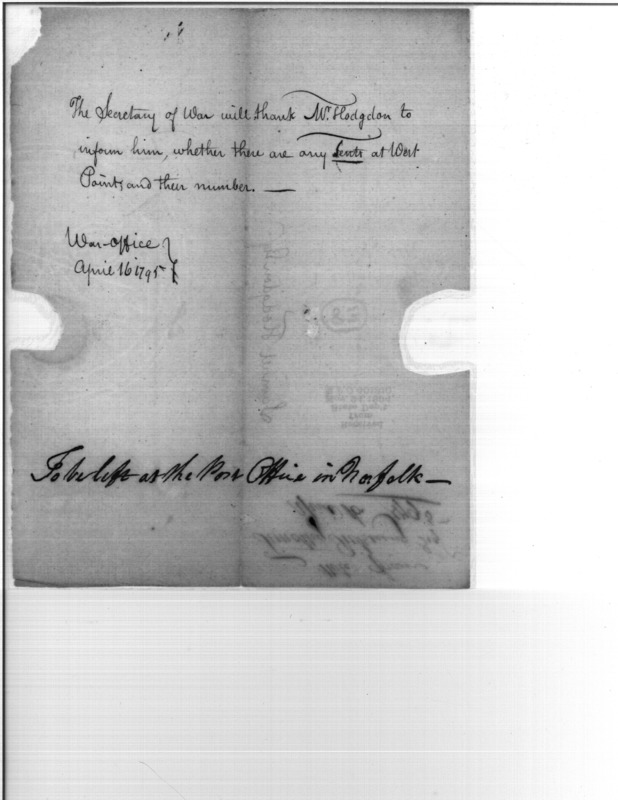 The Secretary of War will thank Mr. Hodgdon to
inform him, whether there are any tents at West
Point, and their number. —
War-office
April 16 1795
To be left at the Post Office in Norfolk —
Samuel Hodgdon
Received
From
State Dep't
R.&P. 
Timothy Pickering Esq